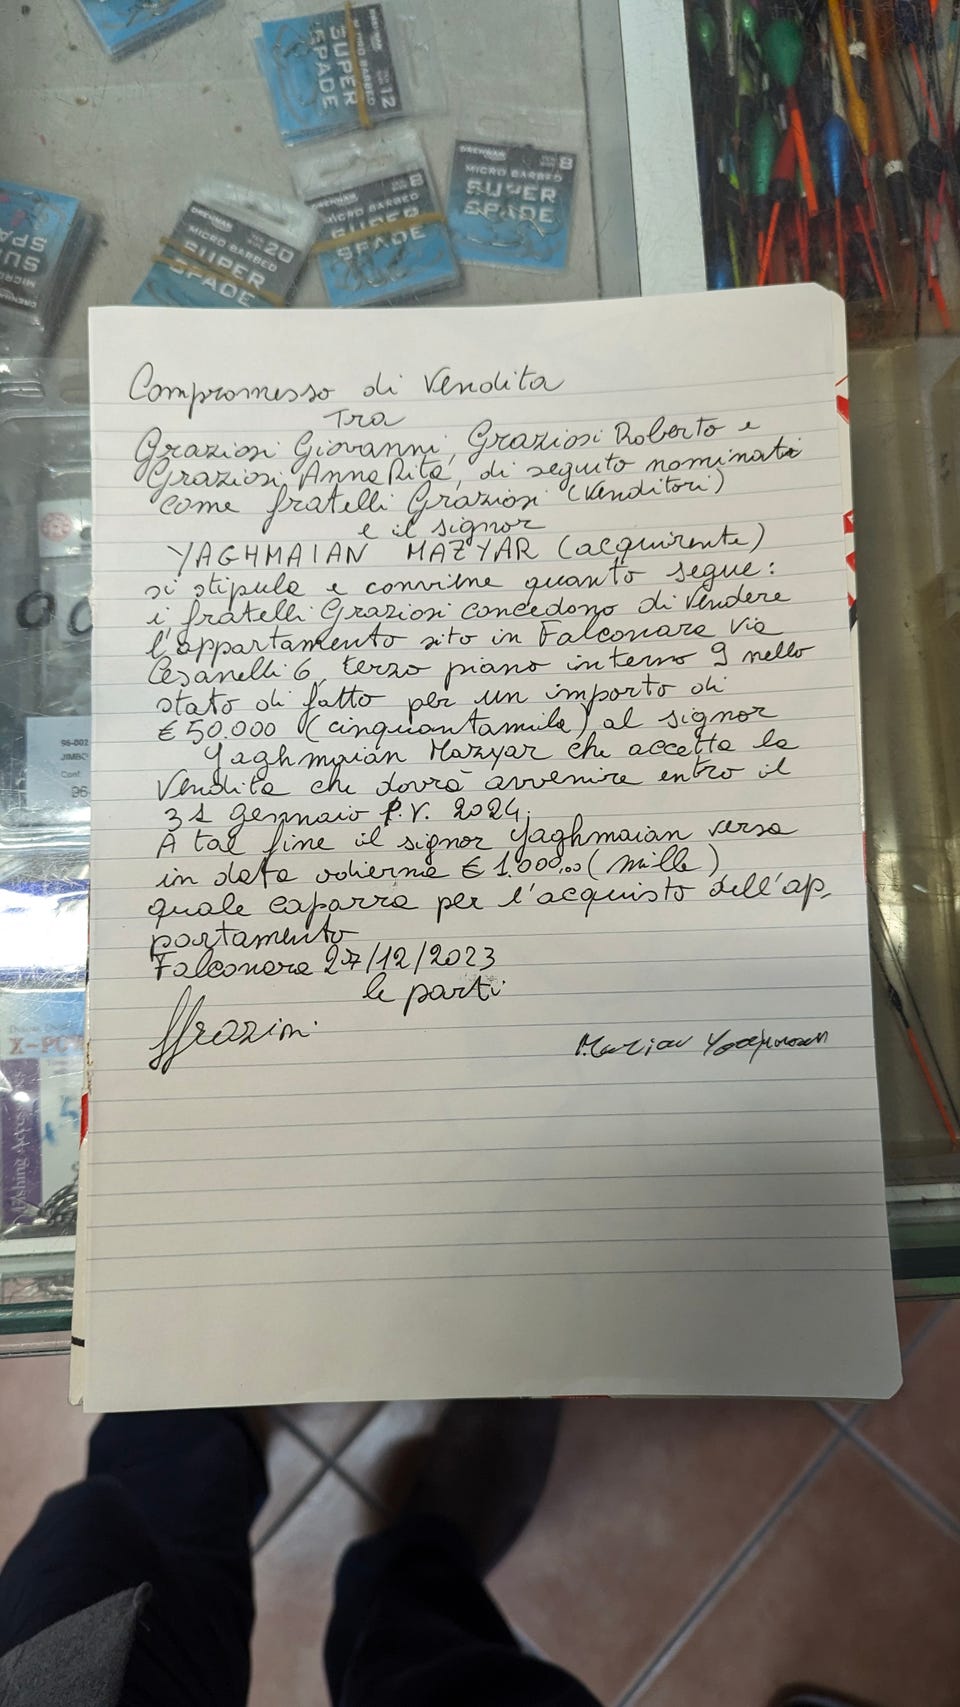 SUPER
SPADE
12
DRENNAN
MICRO BARBED
SUPER
SPADE
20
MICRO BARBED
SUPER
SPADE
8
DRENNAN
MICRO BARBED
SUPER
SPADE
8
Compromesso di Vendita
Tra
Graziosi Giovanni, Graziosi Roberto e
Graziosi AnnaRita, di seguito nominati
come fratelli Graziosi (Venditori)
e il signor
YAGHMAIAN MAZYAR (acquirente)
si stipula e conviene quanto segue:
i fratelli Graziosi concedono di Vendere
l'appartamento sito in Falconara via
Cesanelli 6, terzo piano interno 9 nello
stato di fatto per un importo di
€ 50.000 (cinquantamila) al signor
Yaghmaian Mazyar che accetta la
Vendita che dovrà avvenire entro il
31 gennaio P.V. 2024.
A tal fine il signor Yaghmaian versa
in data odierna € 1.000,00 (mille)
quale caparra per l'acquisto dell'ap-
partamento
Falconara 27/12/2023
le parti
96-002
JIMBO
Cont
96-
X-PO
Fishing Accessories